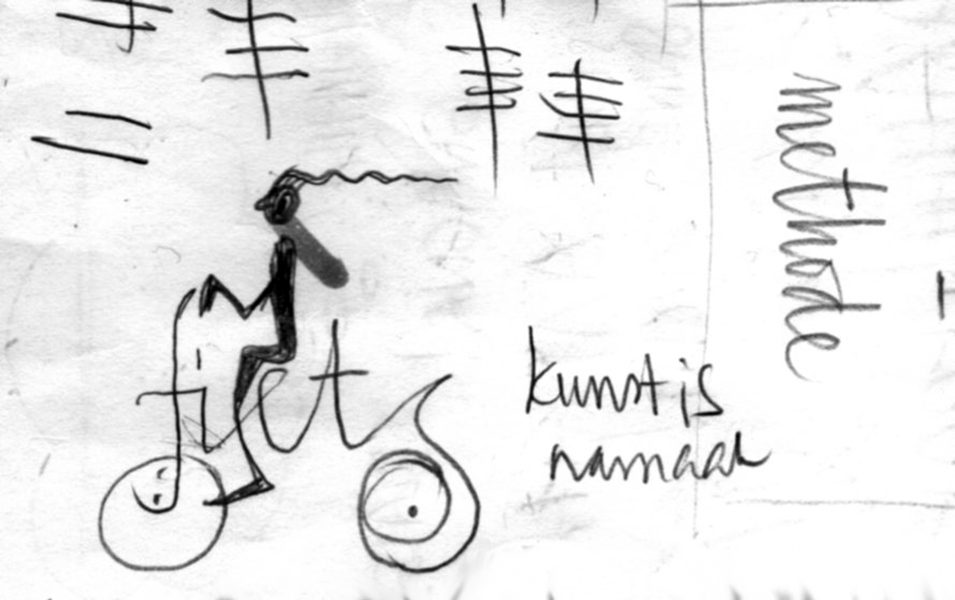 fiets
kunst is
namaak
methode